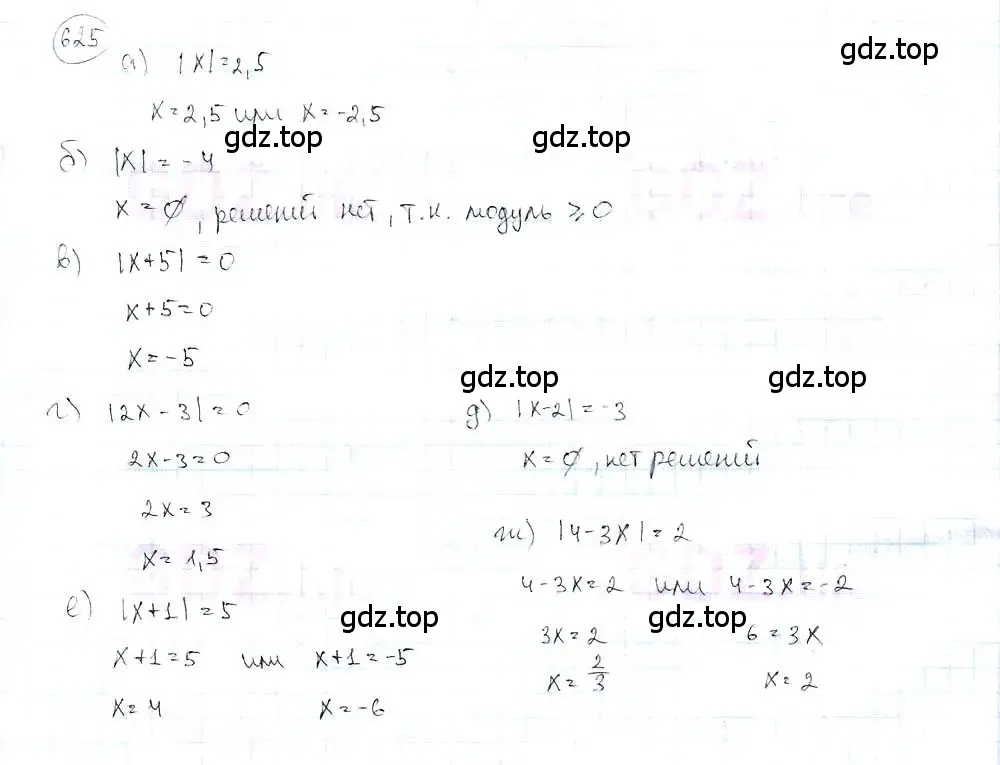 625
а) |x|=2,5
gdz.top
x=2,5 или x=-2,5
gdz.top gdz.top
б) |x|=-4
x=∅, решений нет, т.к. модуль ⩾0
в) |x+5|=0
x+5=0
x=-5
gdz.top gdz.top
г) |2x-3|=0
2x-3=0
2x=3
x=1,5
д) |x-2|=-3
x=∅, нет решений
е) |x+1|=5
gdz.top
x+1=5 или x+1=-5
x=4 x=-6
ж) |4-3x|=2
4-3x=2 или 4-3x=-2
gdz.top
3x=2 6=3x
x=2/3 x=2